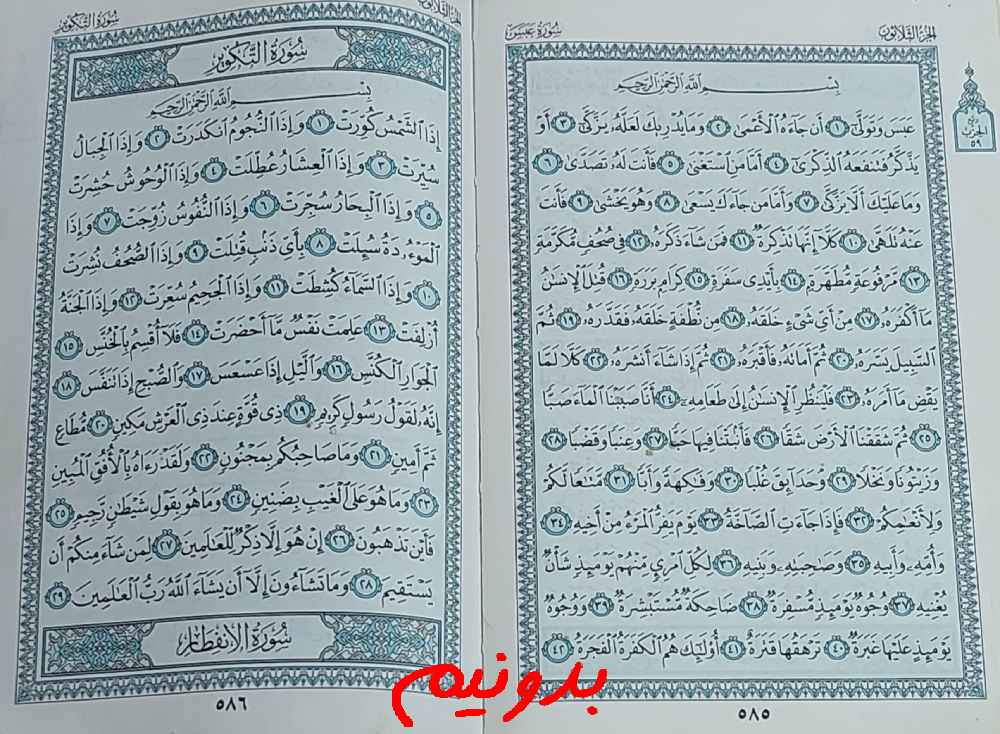 الجزء الثلاثون
سورة عبس
ربع
الحزب
٥٩
بِسْمِ اللَّهِ الرَّحْمَٰنِ الرَّحِيمِ
عَبَسَ وَتَوَلَّىٰٓ ١ أَن جَآءَهُ ٱلْأَعْمَىٰ ٢ وَمَا يُدْرِيكَ لَعَلَّهُۥ يَزَّكَّىٰٓ ٣ أَوْ
يَذَّكَّرُ فَتَنفَعَهُ ٱلذِّكْرَىٰٓ ٤ أَمَّا مَنِ ٱسْتَغْنَىٰ ٥ فَأَنتَ لَهُۥ تَصَدَّىٰ ٦
وَمَا عَلَيْكَ أَلَّا يَزَّكَّىٰ ٧ وَأَمَّا مَن جَآءَكَ يَسْعَىٰ ٨ وَهُوَ يَخْشَىٰ ٩ فَأَنتَ
عَنْهُ تَلَهَّىٰ ١٠ كَلَّآ إِنَّهَا تَذْكِرَةٌ ١١ فَمَن شَآءَ ذَكَرَهُۥ ١٢ فِى صُحُفٍ مُّكَرَّمَةٍ
١٣ مَّرْفُوعَةٍ مُّطَهَّرَةٍۭ ١٤ بِأَيْدِى سَفَرَةٍ ١٥ كِرَامٍۭ بَرَرَةٍ ١٦ قُتِلَ ٱلْإِنسَٰنُ
مَآ أَكْفَرَهُۥ ١٧ مِنْ أَىِّ شَىْءٍ خَلَقَهُۥ ١٨ مِن نُّطْفَةٍ خَلَقَهُۥ فَقَدَّرَهُۥ ١٩ ثُمَّ
ٱلسَّبِيلَ يَسَّرَهُۥ ٢٠ ثُمَّ أَمَاتَهُۥ فَأَقْبَرَهُۥ ٢١ ثُمَّ إِذَا شَآءَ أَنشَرَهُۥ ٢٢ كَلَّا لَمَّا
يَقْضِ مَآ أَمَرَهُۥ ٢٣ فَلْيَنظُرِ ٱلْإِنسَٰنُ إِلَىٰ طَعَامِهِۦٓ ٢٤ أَنَّا صَبَبْنَا ٱلْمَآءَ صَبًّا
٢٥ ثُمَّ شَقَقْنَا ٱلْأَرْضَ شَقًّا ٢٦ فَأَنۢبَتْنَا فِيهَا حَبًّا ٢٧ وَعِنَبًا وَقَضْبًا ٢٨
وَزَيْتُونًا وَنَخْلًا ٢٩ وَحَدَآئِقَ غُلْبًا ٣٠ وَفَٰكِهَةً وَأَبًّا ٣١ مَّتَٰعًا لَّكُمْ
وَلِأَنْعَٰمِكُمْ ٣٢ فَإِذَا جَآءَتِ ٱلصَّآخَّةُ ٣٣ يَوْمَ يَفِرُّ ٱلْمَرْءُ مِنْ أَخِيهِ ٣٤
وَأُمِّهِۦ وَأَبِيهِ ٣٥ وَصَٰحِبَتِهِۦ وَبَنِيهِ ٣٦ لِكُلِّ ٱمْرِئٍ مِّنْهُمْ يَوْمَئِذٍ شَأْنٌ
يُغْنِيهِ ٣٧ وُجُوهٌ يَوْمَئِذٍ مُّسْفِرَةٌ ٣٨ ضَاحِكَةٌ مُّسْتَبْشِرَةٌ ٣٩ وَوُجُوهٌ
يَوْمَئِذٍ عَلَيْهَا غَبَرَةٌ ٤٠ تَرْهَقُهَا قَتَرَةٌ ٤١ أُو۟لَٰٓئِكَ هُمُ ٱلْكَفَرَةُ ٱلْفَجَرَةُ ٤٢
٥٨٥
الجزء الثلاثون
سورة التكوير
سُورَةُ التَّكْوِيرِ
بِسْمِ اللَّهِ الرَّحْمَٰنِ الرَّحِيمِ
إِذَا ٱلشَّمْسُ كُوِّرَتْ ١ وَإِذَا ٱلنُّجُومُ ٱنكَدَرَتْ ٢ وَإِذَا ٱلْجِبَالُ
سُيِّرَتْ ٣ وَإِذَا ٱلْعِشَارُ عُطِّلَتْ ٤ وَإِذَا ٱلْوُحُوشُ حُشِرَتْ
٥ وَإِذَا ٱلْبِحَارُ سُجِّرَتْ ٦ وَإِذَا ٱلنُّفُوسُ زُوِّجَتْ ٧ وَإِذَا
ٱلْمَوْءُۥدَةُ سُئِلَتْ ٨ بِأَىِّ ذَنۢبٍ قُتِلَتْ ٩ وَإِذَا ٱلصُّحُفُ نُشِرَتْ
١٠ وَإِذَا ٱلسَّمَآءُ كُشِطَتْ ١١ وَإِذَا ٱلْجَحِيمُ سُعِّرَتْ ١٢ وَإِذَا ٱلْجَنَّةُ
أُزْلِفَتْ ١٣ عَلِمَتْ نَفْسٌ مَّآ أَحْضَرَتْ ١٤ فَلَآ أُقْسِمُ بِٱلْخُنَّسِ ١٥
ٱلْجَوَارِ ٱلْكُنَّسِ ١٦ وَٱلَّيْلِ إِذَا عَسْعَسَ ١٧ وَٱلصُّبْحِ إِذَا تَنَفَّسَ ١٨
إِنَّهُۥ لَقَوْلُ رَسُولٍ كَرِيمٍ ١٩ ذِى قُوَّةٍ عِندَ ذِى ٱلْعَرْشِ مَكِينٍ ٢٠ مُّطَاعٍ
ثَمَّ أَمِينٍ ٢١ وَمَا صَاحِبُكُم بِمَجْنُونٍ ٢٢ وَلَقَدْ رَءَاهُ بِٱلْأُفُقِ ٱلْمُبِينِ
٢٣ وَمَا هُوَ عَلَى ٱلْغَيْبِ بِضَنِينٍ ٢٤ وَمَا هُوَ بِقَوْلِ شَيْطَٰنٍ رَّجِيمٍ ٢٥
فَأَيْنَ تَذْهَبُونَ ٢٦ إِنْ هُوَ إِلَّا ذِكْرٌ لِّلْعَٰلَمِينَ ٢٧ لِمَن شَآءَ مِنكُمْ أَن
يَسْتَقِيمَ ٢٨ وَمَا تَشَآءُونَ إِلَّآ أَن يَشَآءَ ٱللَّهُ رَبُّ ٱلْعَٰلَمِينَ ٢٩
سُورَةُ الانفِطَارِ
٥٨٦
بدونيم